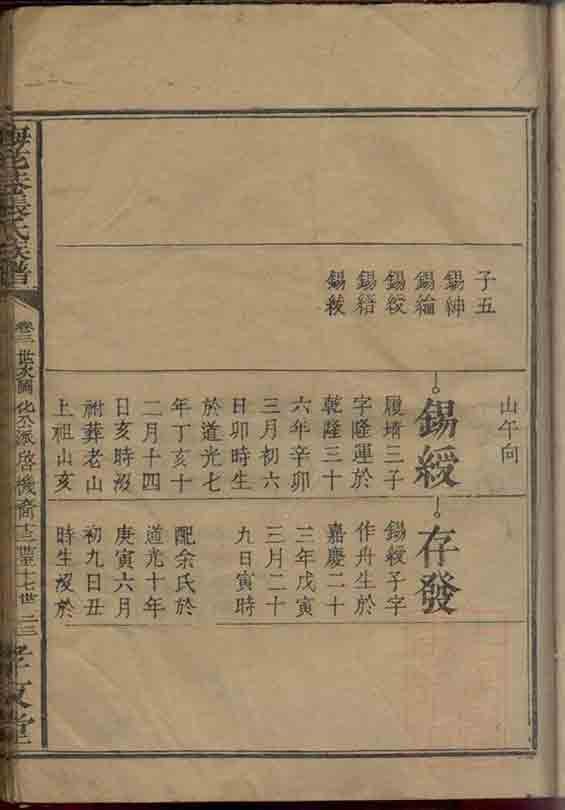 子五
錫紳
錫綸
錫綬
錫縉
錫紱
山午向
錫綬
履堉三子
字隆運於
乾隆三十
六年辛卯
三月初六
日卯時生
於道光七
年丁亥十
二月十四
日亥時沒
祔葬老山
上祖山亥
存發
錫綬子字
作舟生於
嘉慶二十
三年戊寅
三月二十
九日寅時
配余氏於
道光十年
庚寅六月
初九日丑
時生沒於
張氏族譜
卷三 世次圖 派啓機裔十三世至十七世 二三
孝友堂